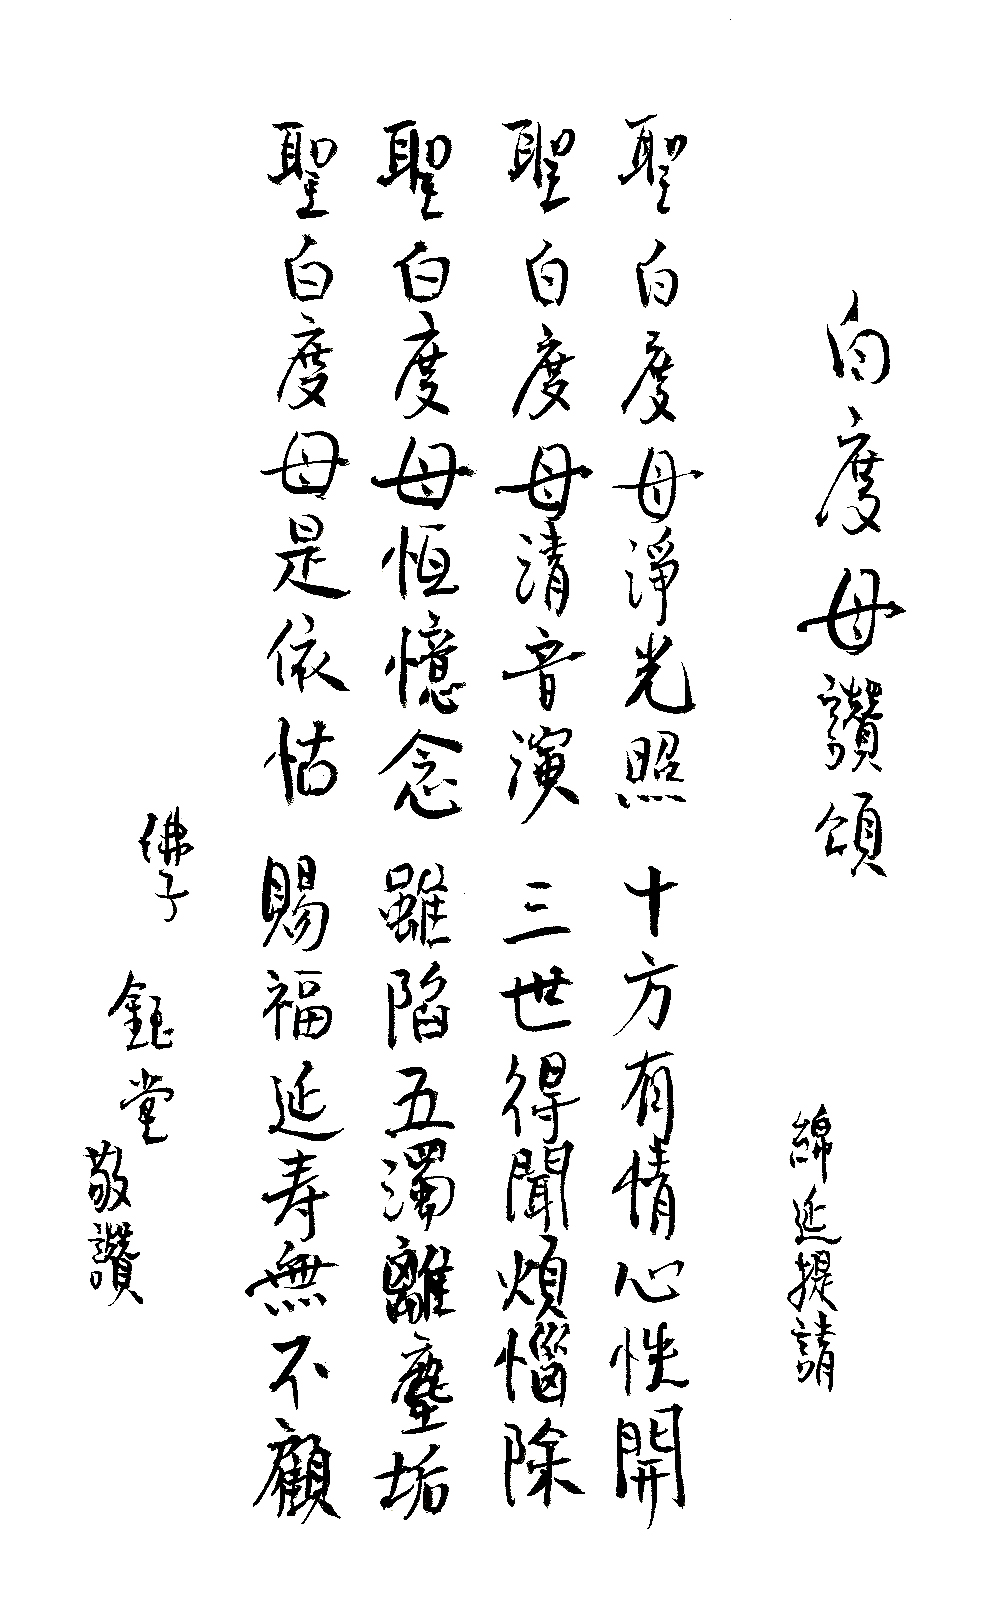 白度母讚頌
綿延提請
聖白度母淨光照 十方有情心性開
聖白度母清音演 三世得聞煩惱除
聖白度母恒憶念 雖陷五濁離塵垢
聖白度母是依怙 賜福延寿無不顧
佛子 鈺堂 敬讚